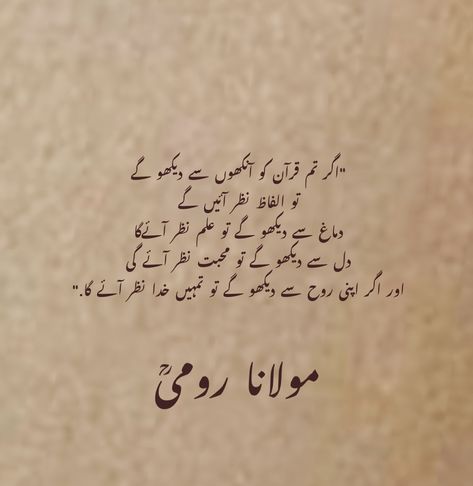 "اگر تم قرآن کو آنکھوں سے دیکھو گے
تو الفاظ نظر آئیں گے
دماغ سے دیکھو گے تو علم نظر آئےگا
دل سے دیکھو گے تو محبت نظر آئے گی
اور اگر اپنی روح سے دیکھو گے تو تمہیں خدا نظر آئے گا."
مولانا رومیؒ